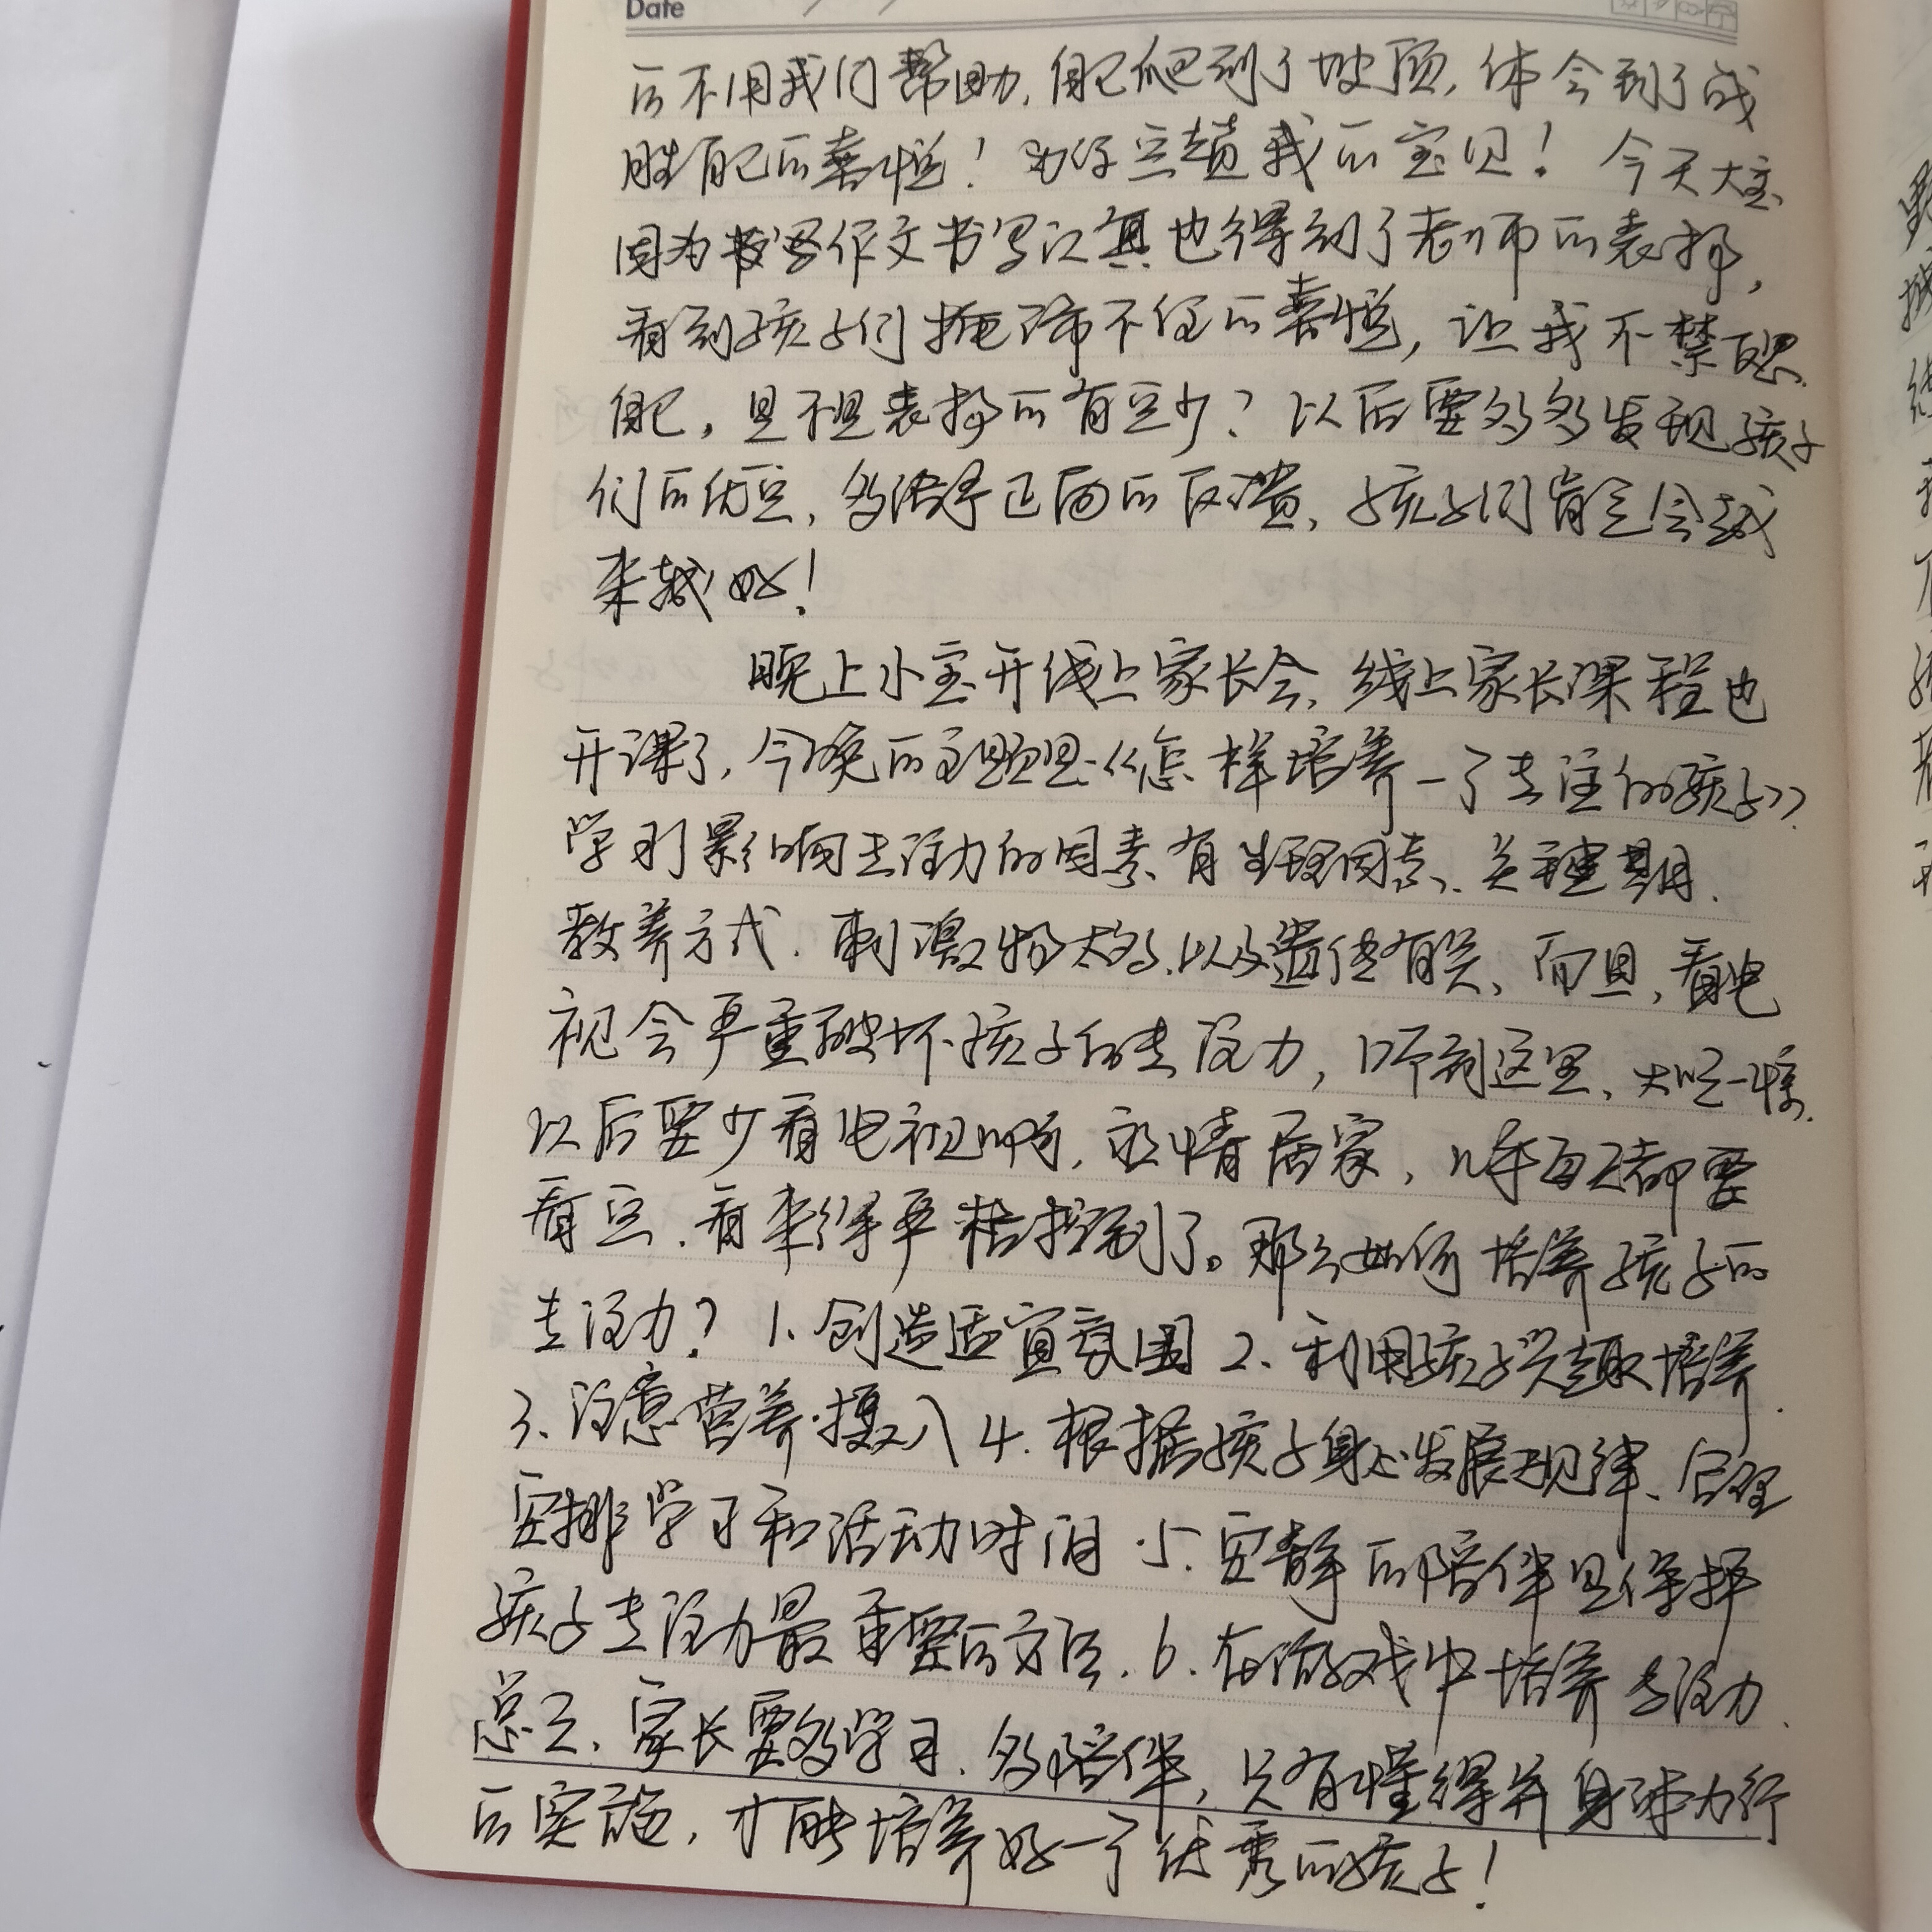 Date
的不用我们帮助，自己爬到了坡顶，体会到了战
胜自己的喜悦！为你点赞我的宝贝！今天大宝
因为书写作文书写认真也得到了老师的表扬，
看到孩子们掩饰不住的喜悦，让我不禁反思
自己，是不是表扬的有点少？以后要多多发现孩子
们的优点，多给予正面的反馈，孩子们肯定会越
来越好！
晚上小宝开线上家长会，线上家长课程也
开课了，今晚的主题是《怎样培养一个专注的孩子》
学习了影响专注力的因素、有生理因素、关键期、
教养方式、刺激物太多、以及遗传有关、而且，看电
视会严重破坏孩子的专注力，听到这里、大吃一惊、
以后要少看电视啊，疫情居家，几乎每天都要
看点、看来得严格控制了。那么如何培养孩子的
专注力？1、创造适宜氛围 2、利用孩子兴趣培养、
3、注意营养摄入 4、根据孩子身心发展规律、合理
安排学习和活动时间 5、安静的陪伴是保护
孩子专注力最重要的方法、6、在游戏中培养专注力、
总之、家长要多学习、多陪伴，只有懂得并身体力行
的实施，才能培养好一个优秀的孩子！